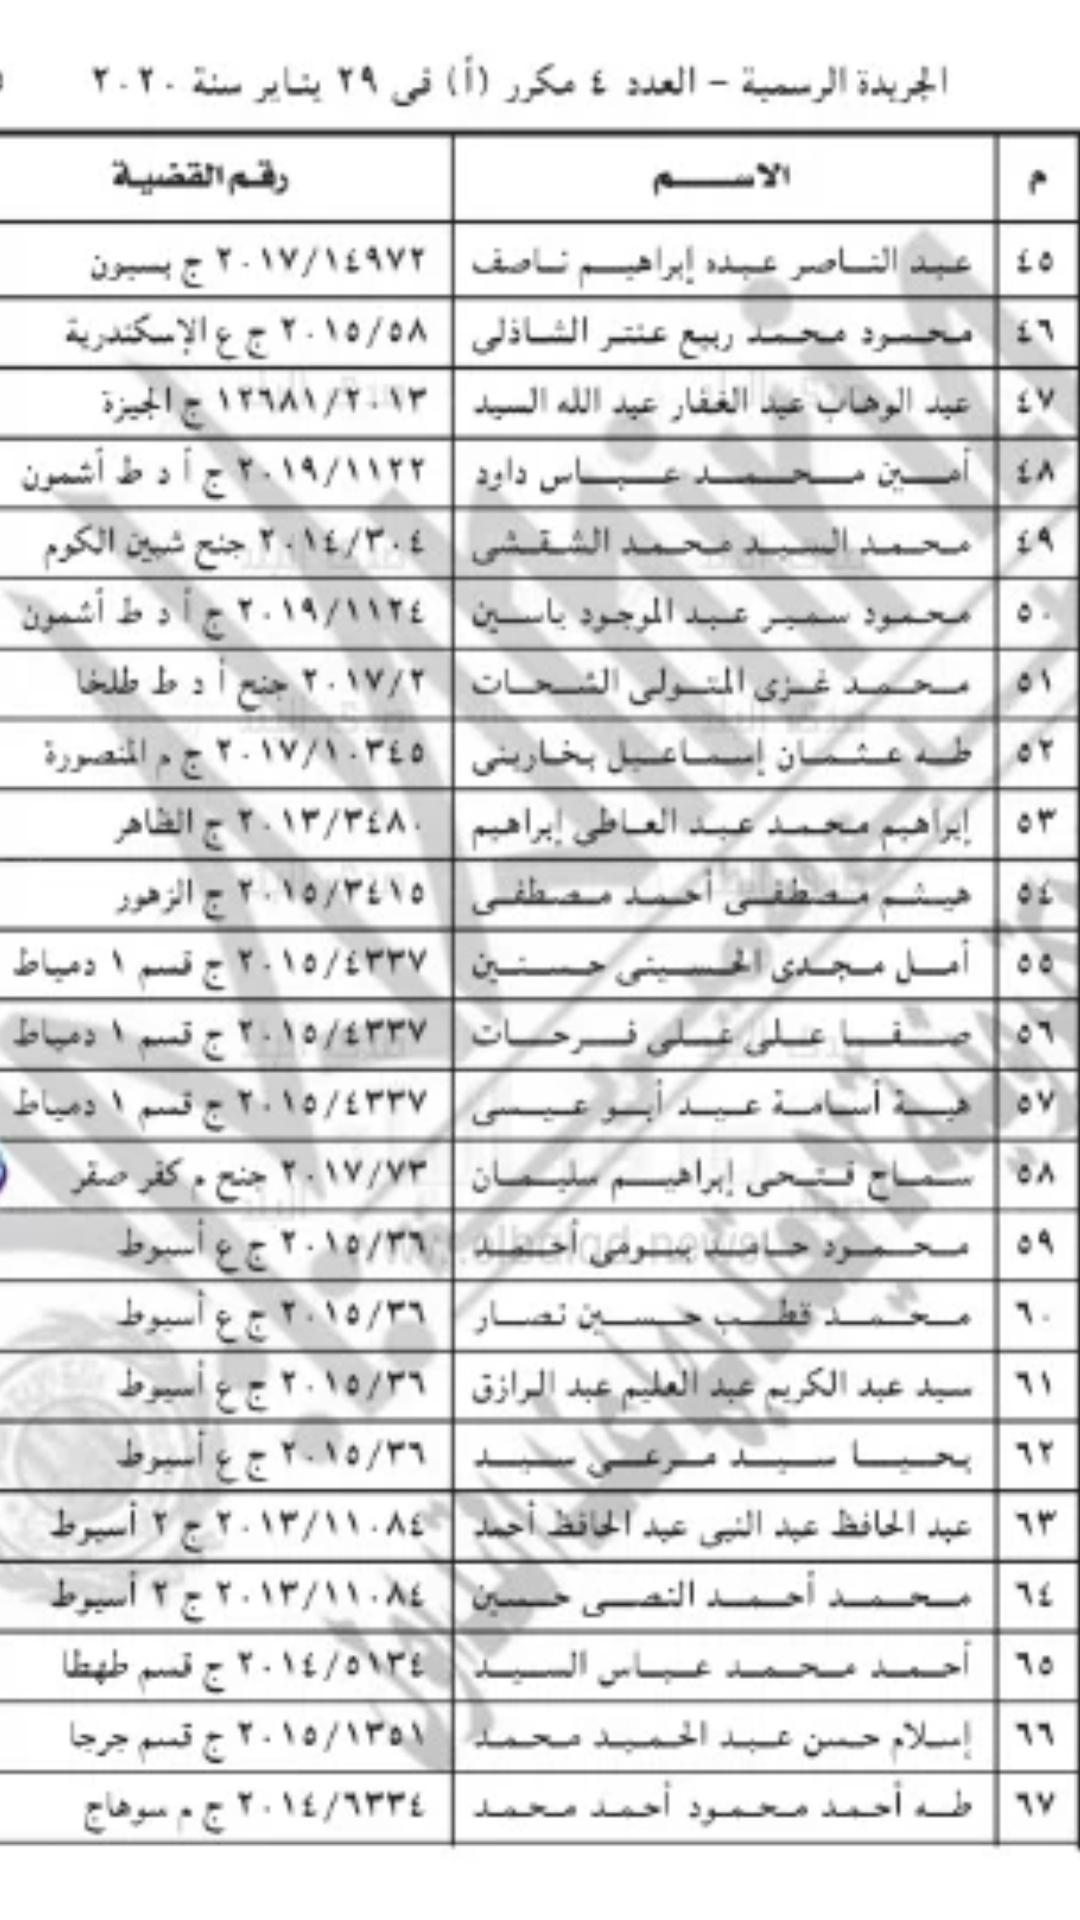 الجريدة الرسمية – العدد ٤ مكرر (أ) فى ٢٩ يناير سنة ٢٠٢٠
م الاســـــم رقـم القضيـة
٤٥ عبد النـاصر عبده إبراهيـم نـاصف ٢٠١٧/١٤٩٧٢ ج بسيون
٤٦ محمود محمد ربيع عنتر الشاذلى ٢٠١٥/٥٨ ج ع الإسكندرية
٤٧ عبد الوهاب عبد الغفار عبد الله السيد ١٢٦٨١/٢٠١٣ ج الجيزة
٤٨ أمـــين مـــحـــمـــد عـــبـــاس داود ٢٠١٩/١١٢٢ ج أ د ط أشمون
٤٩ محمد السيد محمد الشقشى ٢٠١٤/٣٠٤ جنح شبين الكوم
٥٠ محمود سمير عبد الموجود ياسين ٢٠١٩/١١٢٤ ج أ د ط أشمون
٥١ محمد غزى المتولى الشحات ٢٠١٧/٢ جنح أ د ط طلخا
٥٢ طـه عـثـمـان إسـمـاعـيـل بخارينى ٢٠١٧/١٠٣٤٥ ج م المنصورة
٥٣ إبراهيم محمد عبد العاطى إبراهيم ٢٠١٣/٣٤٨٠ ج الظاهر
٥٤ هيـثـم مـصطفـى أحـمـد مـصطفـى ٢٠١٥/٣٤١٥ ج الزهور
٥٥ أمـل مـجـدى الحـسـينى حـسـنـين ٢٠١٥/٤٣٣٧ ج قسم ١ دمياط
٥٦ صـــفـــا عـلـى عـلـى فـــرحـــات ٢٠١٥/٤٣٣٧ ج قسم ١ دمياط
٥٧ هبـــة أسـامـة عـبـد أبـو عـيـسـى ٢٠١٥/٤٣٣٧ ج قسم ١ دمياط
٥٨ سـمـاح فـتـحى إبراهيـم سليـمـان ٢٠١٧/٧٣ جنح م كفر صقر
٥٩ محـمـود حـامـد بيـومى أحـمـد ٢٠١٥/٣٦ ج ع أسيوط
٦٠ مـحـمـد قطـب حـسـين نصـار ٢٠١٥/٣٦ ج ع أسيوط
٦١ سيد عبد الكريم عبد العليم عبد الرازق ٢٠١٥/٣٦ ج ع أسيوط
٦٢ يـحـيـا سـيـد مـرعـى سـيـد ٢٠١٥/٣٦ ج ع أسيوط
٦٣ عبد الحافظ عبد النبى عبد الحافظ أحمد ٢٠١٣/١١٠٨٤ ج ٢ أسيوط
٦٤ مـحـمـد أحـمـد النصـى حـسـين ٢٠١٣/١١٠٨٤ ج ٢ أسيوط
٦٥ أحـمـد مـحـمـد عـبـاس السـيـد ٢٠١٤/٥١٣٤ ج قسم طهطا
٦٦ إسلام حسن عبد الحميد محمد ٢٠١٥/١٣٥١ ج قسم جرجا
٦٧ طـه أحمد محمود أحمد محمد ٢٠١٤/٦٣٣٤ ج م سوهاج